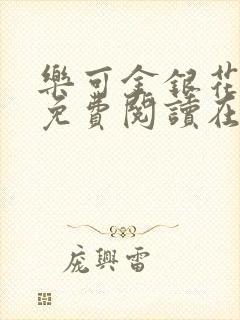 樂可金銀花
免費閱讀在
庞興雷